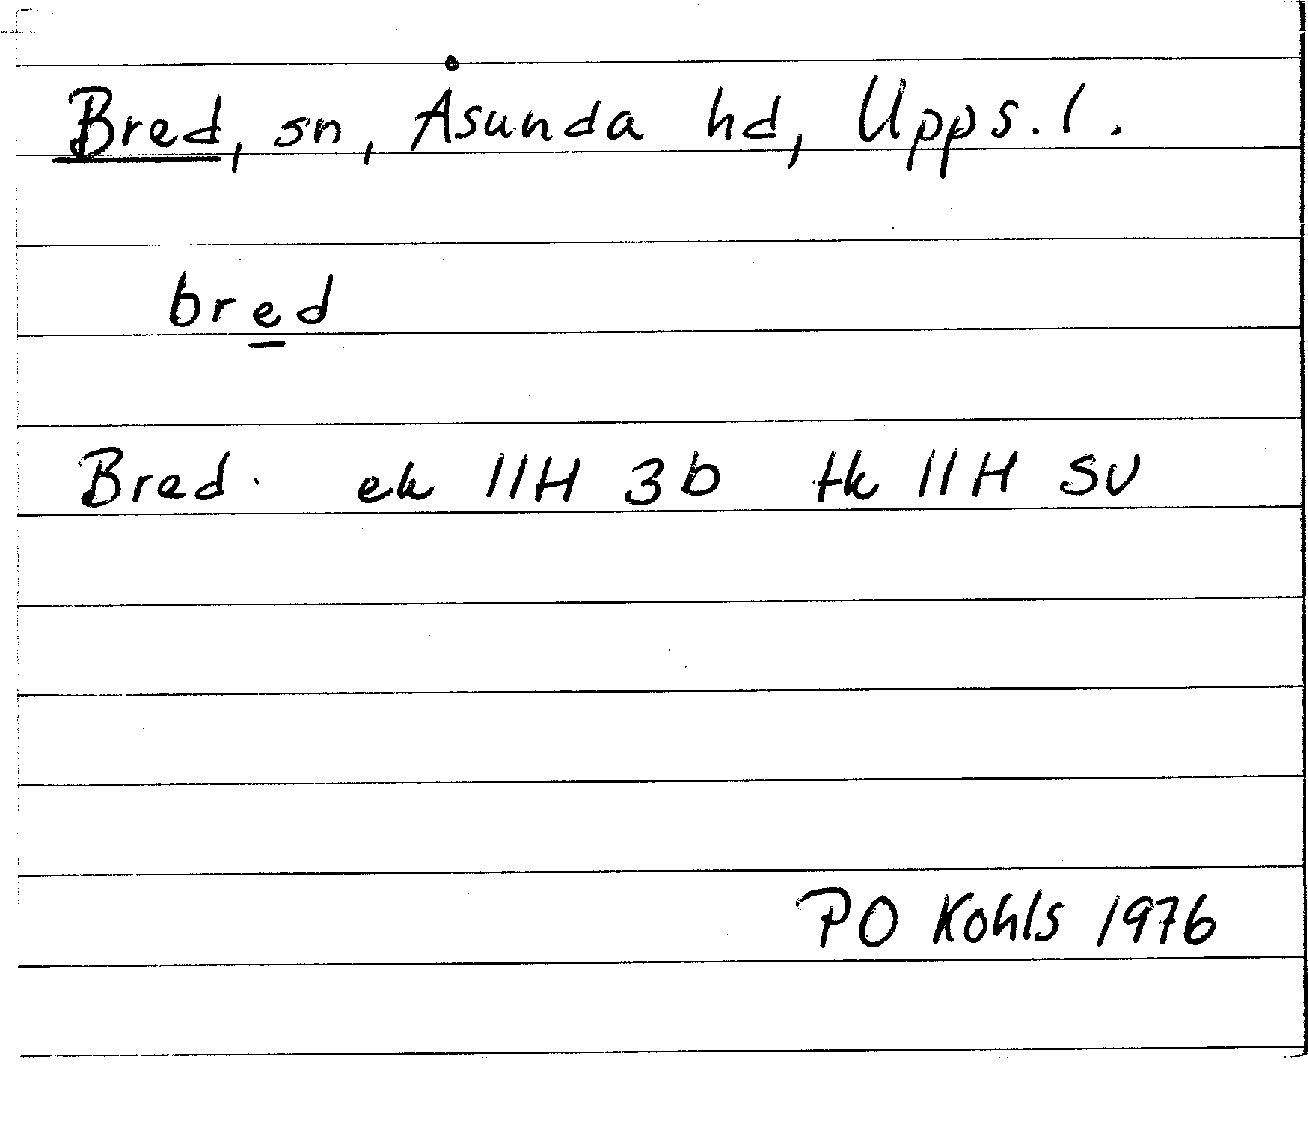 Bred, sn, Åsunda hd, Upps. l.
bred
Bred. ek 11H 3b tk 11H SV
PO Kohls 1976